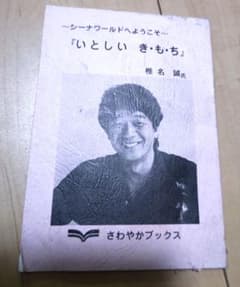 ～シーナワールドへようこそ～
『いとしい き・も・ち』
椎名 誠氏
さわやかブックス